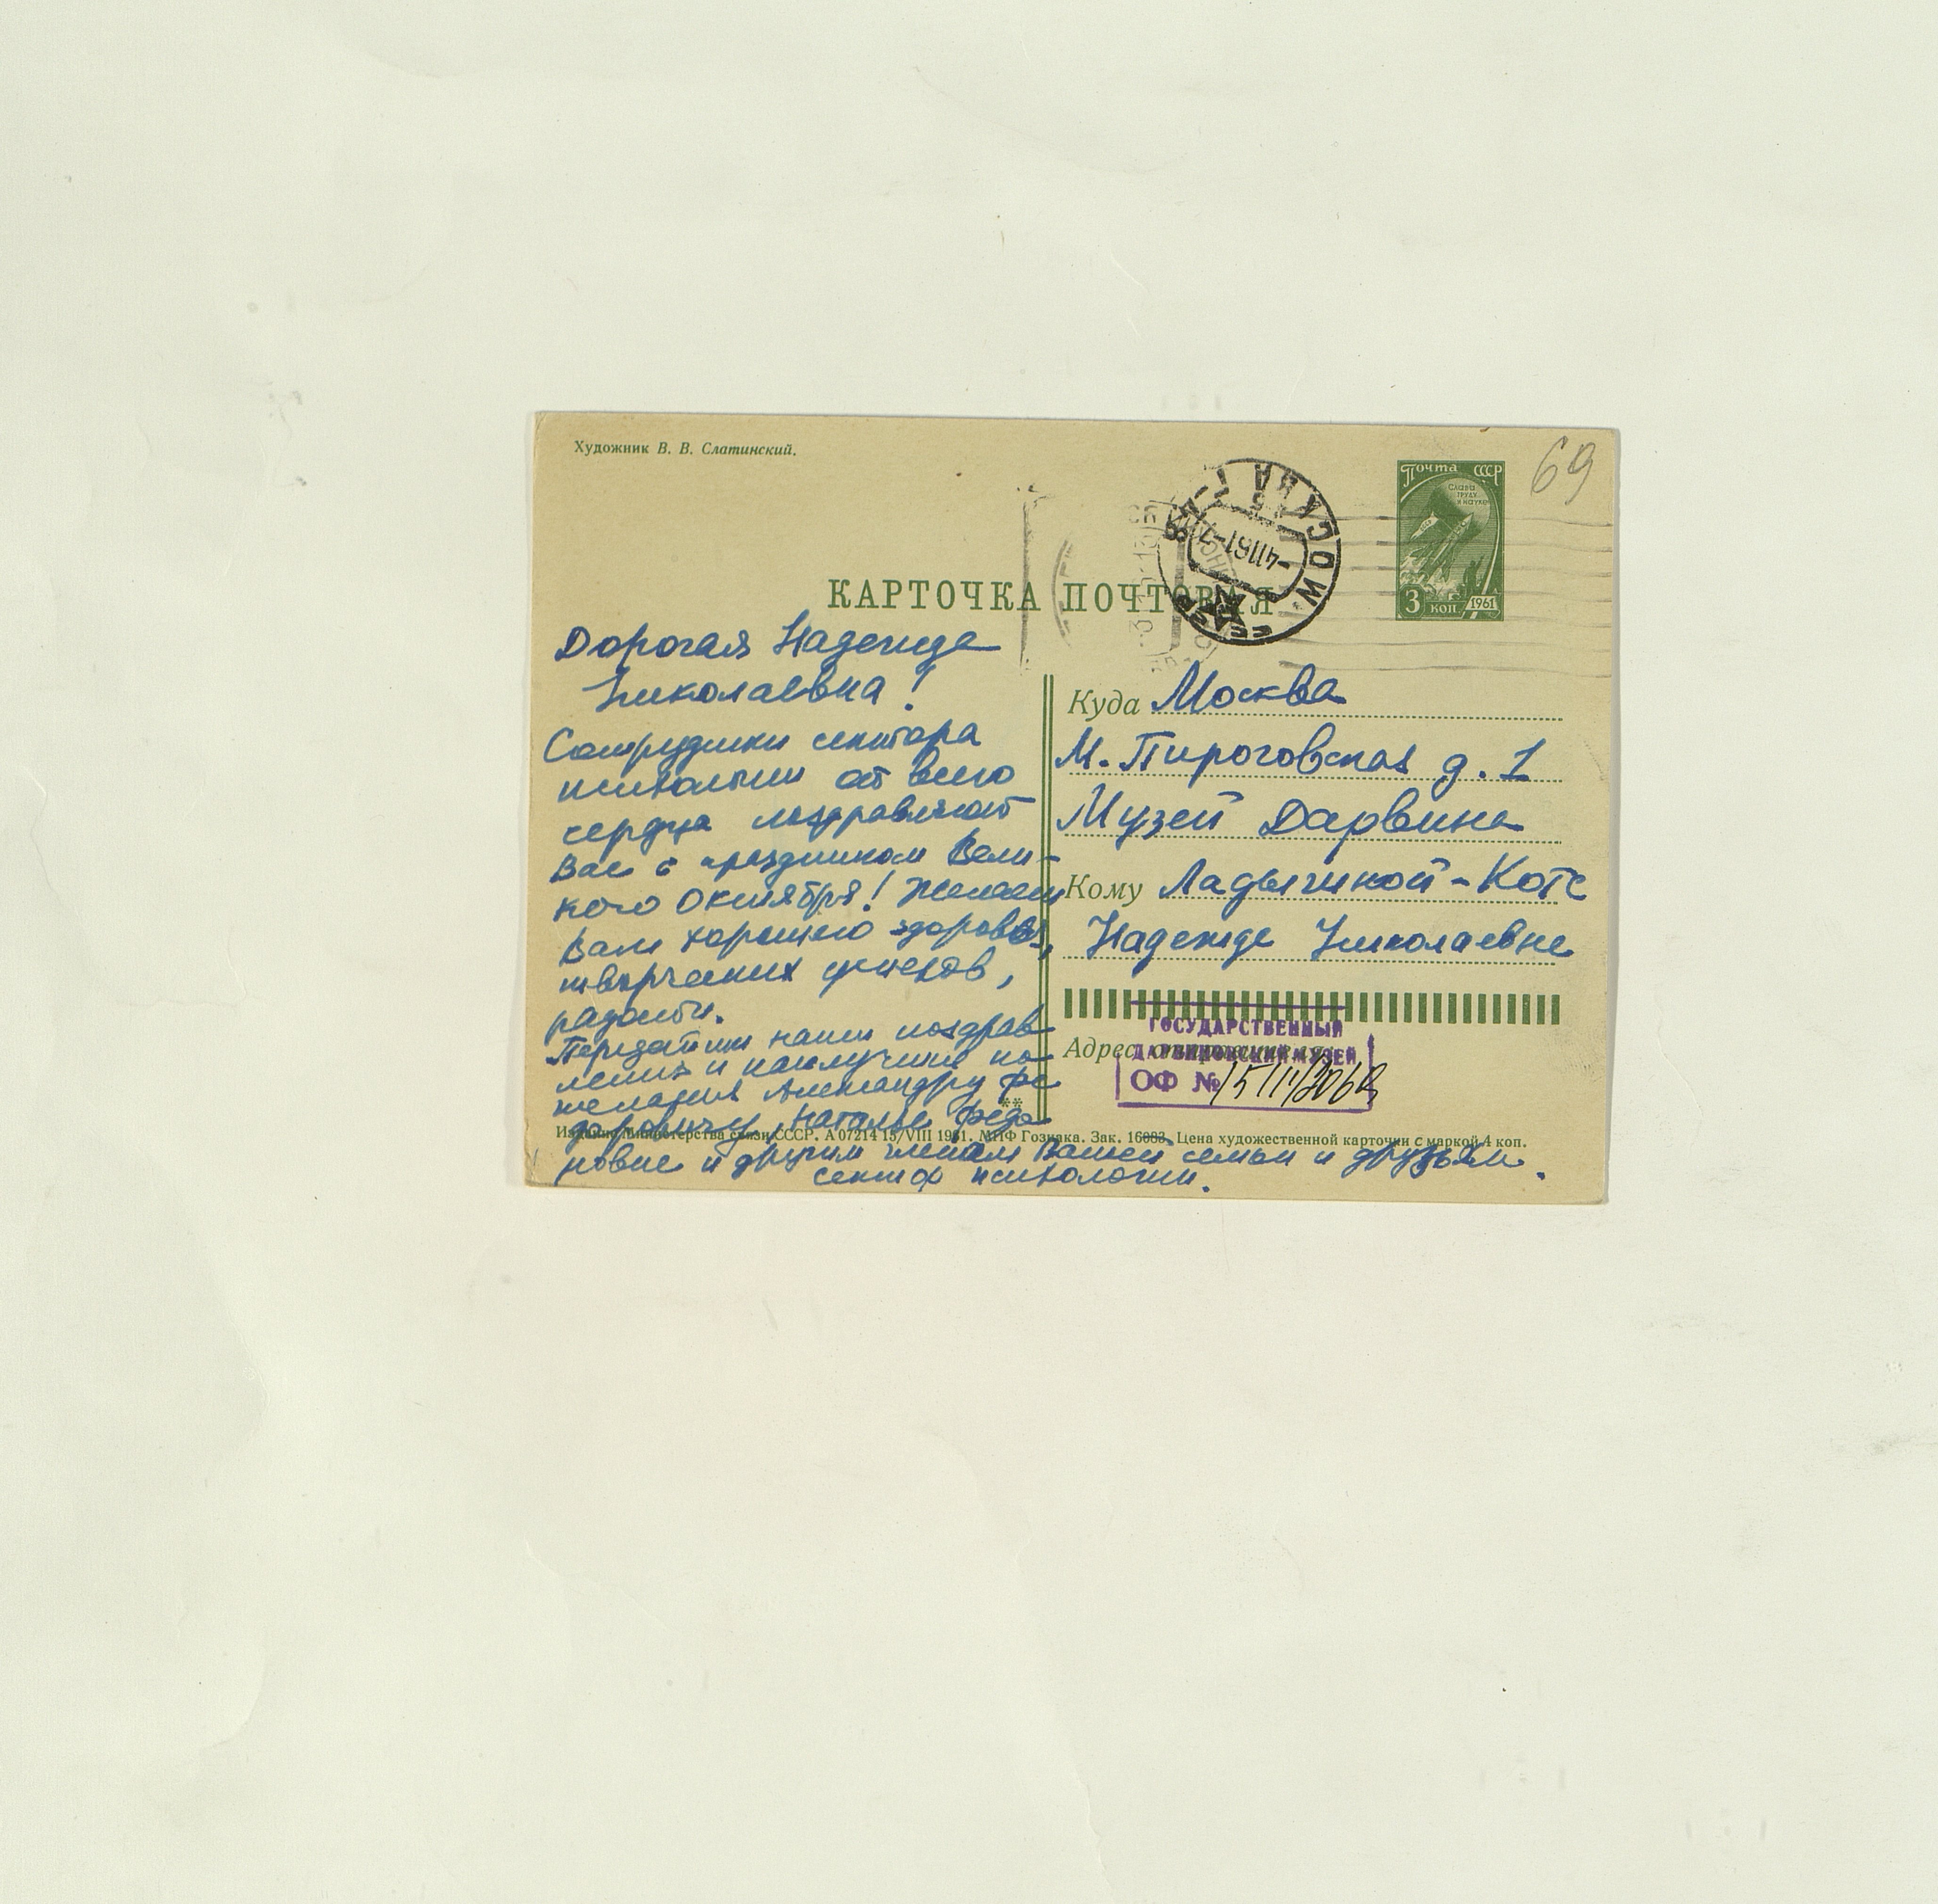 Художник В. В. Слатинский.
69
Почта СССР
Слава труду и науке
3 коп 1961
МОСКВА
-41161-7
КАРТОЧКА ПОЧТОВАЯ
Дорогая Надежда
Николаевна!
Сотрудники сектора
психологии от всего
сердца поздравляют
Вас с праздником Вели-
кого Октября! Желаем
Вам хорошего здоровья,
творческих успехов,
радости.
Передайте наши поздрав
ления и наилучшие по-
желания Александру Фе
доровичу, Наталье Федо
ровне и другим членам Вашей семьи и друзьям.
Сектор психологии.
Куда Москва
М. Пироговская д. 1
Музей Дарвина
Кому Ладыгиной-Котс
Надежде Николаевне
Адрес отправителя:
ГОСУДАРСТВЕННЫЙ
ДАРВИНОВСКИЙ МУЗЕЙ
ОФ №
Издание Министерства связи СССР. А 07214 15/VIII 1961. МПФ Гознака. Зак. 16083. Цена художественной карточки с маркой 4 коп.